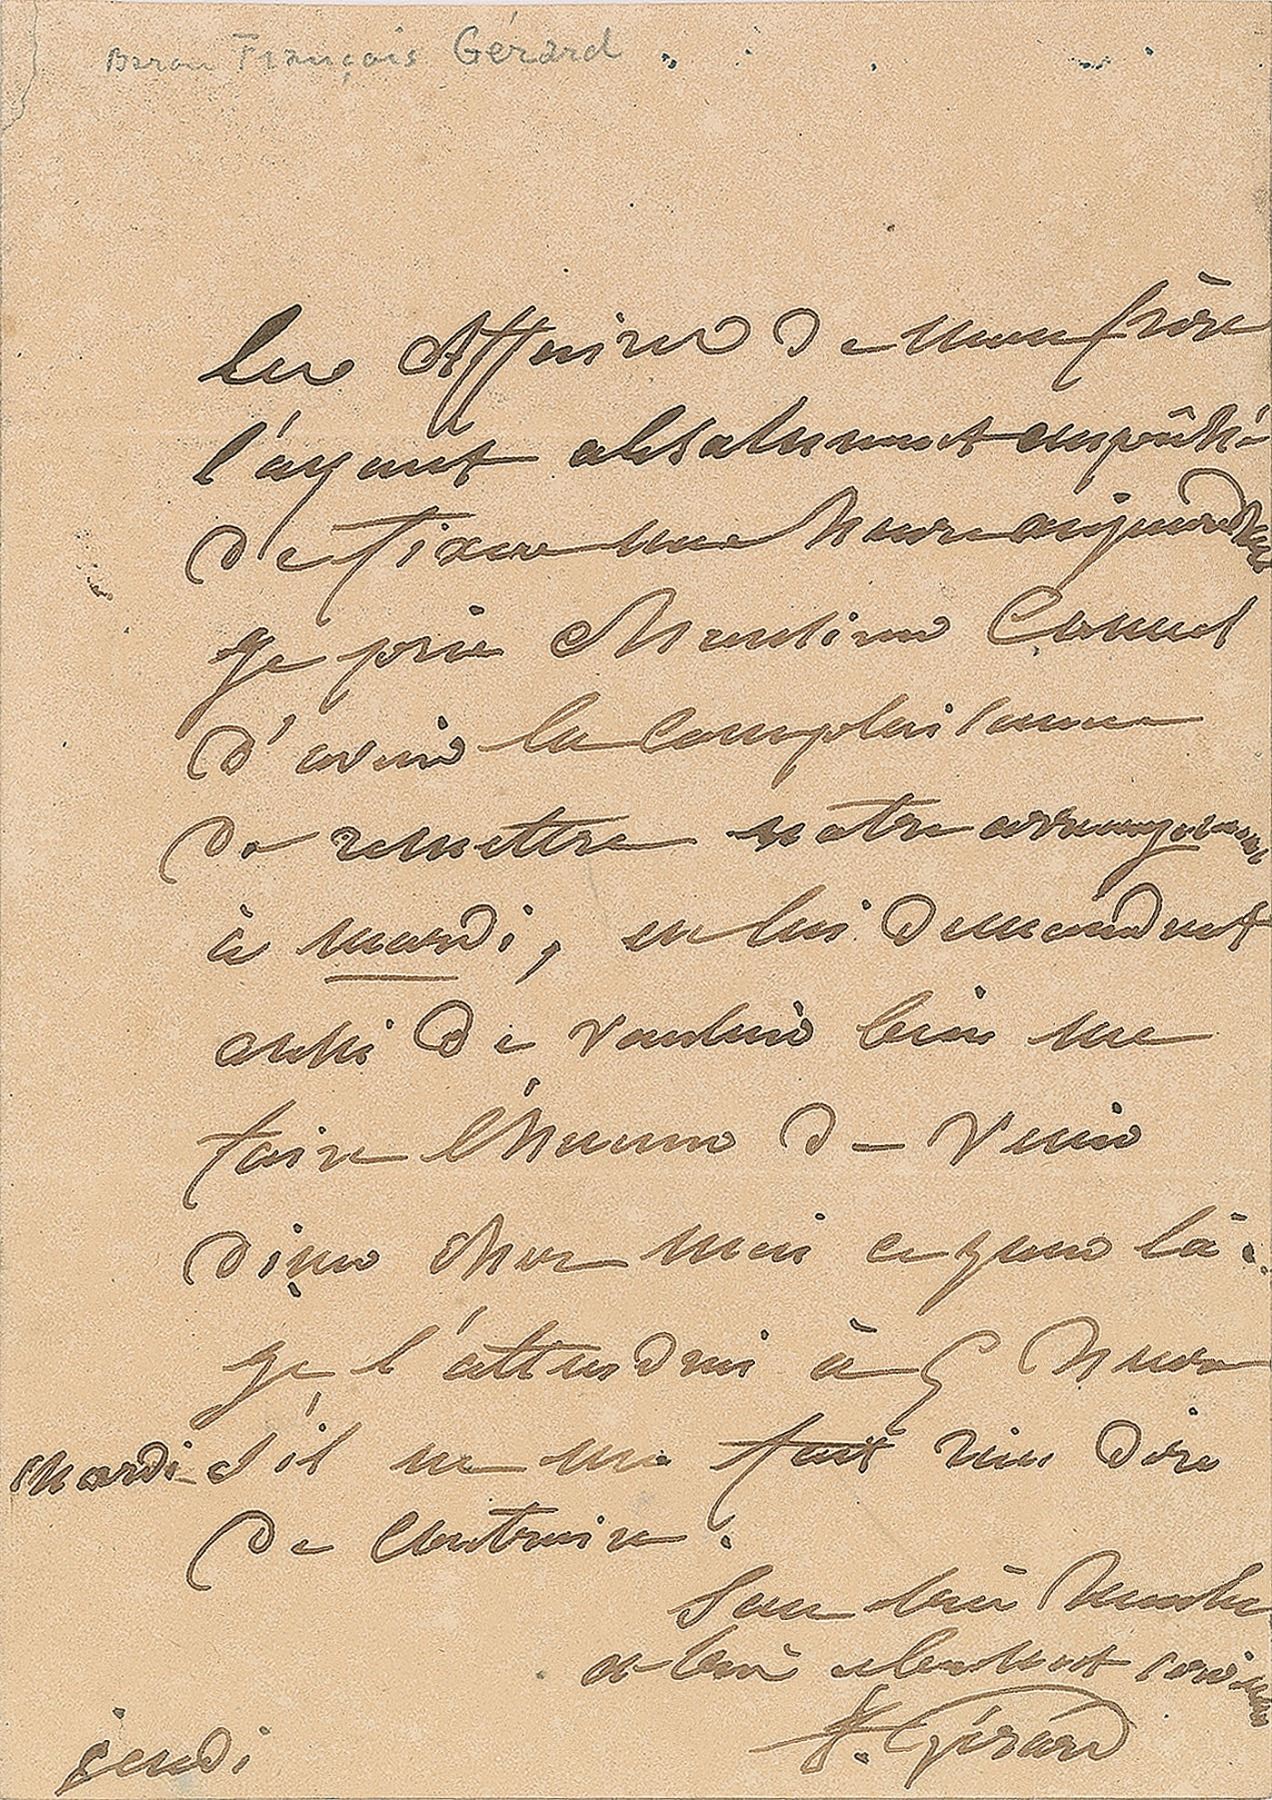 Baron François Gérard
les Affaires de mon frère
l'ayant absolument empêché
de fixer une heure aujourd'hui
je prie Monsieur
d'avoir la complaisance
de remettre notre arrangement
à mardi, en lui demandant
aussi de vouloir bien me
faire l'honneur de venir
diner chez moi ce jour là.
je l'attendrai à 5 heures
mardi s'il ne me fait rien dire
de contraire.
Son très humble
et très obéissant serviteur
F. Gérard
jeudi